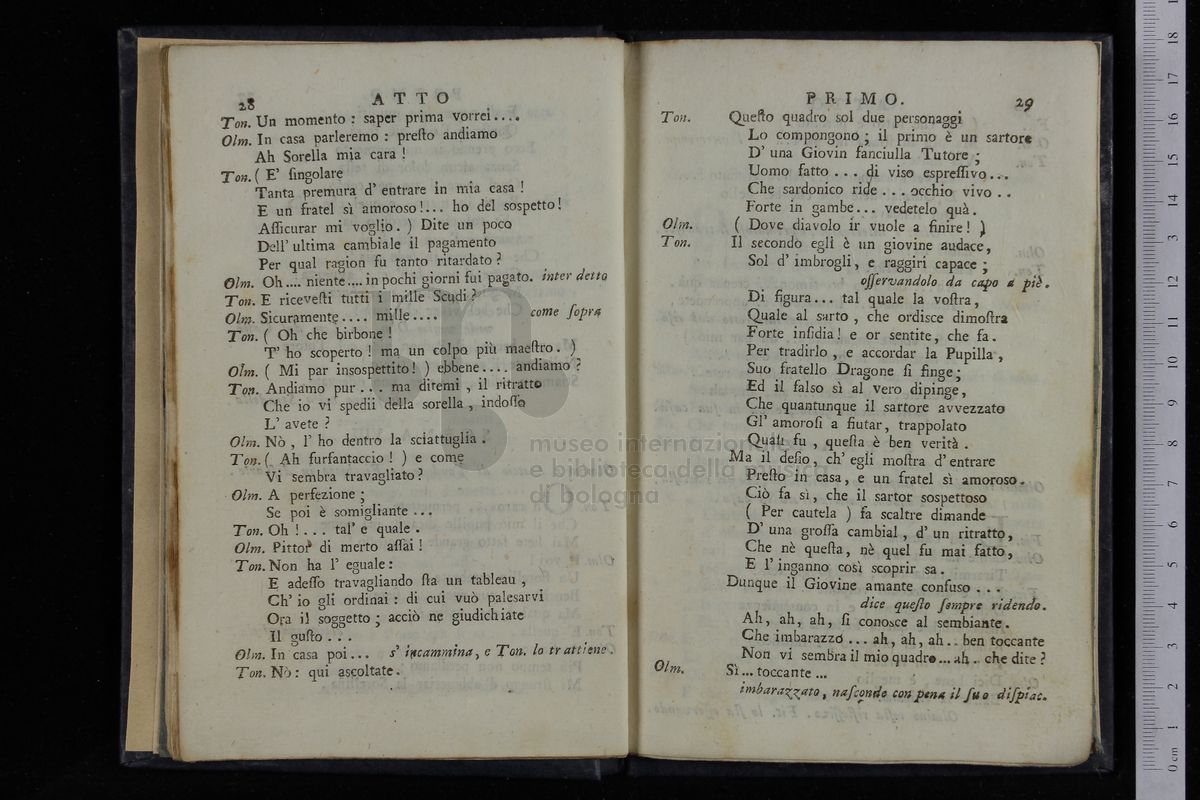 28
ATTO
Ton. Un momento : saper prima vorrei....
Olm. In casa parleremo : preſto andiamo
Ah Sorella mia cara !
Ton. ( E' ſingolare
Tanta premura d' entrare in mia casa !
E un fratel sì amoroso!... ho del sospetto!
Aſſicurar mi voglio. ) Dite un poco
Dell' ultima cambiale il pagamento
Per qual ragion fu tanto ritardato ?
Olm. Oh.... niente.... in pochi giorni fui pagato. inter detto
Ton. E riceveſti tutti i mille Scudi ?
Olm. Sicuramente.... mille.... come ſopra
Ton. ( Oh che birbone !
T' ho scoperto ! ma un colpo più maeſtro. )
Olm. ( Mi par insospettito! ) ebbene.... andiamo ?
Ton. Andiamo pur... ma ditemi , il ritratto
Che io vi spedii della sorella , indoſſo
L' avete ?
Olm. Nò , l' ho dentro la sciattuglia .
Ton. ( Ah furfantaccio ! ) e come
Vi sembra travagliato ?
Olm. A perfezione ;
Se poi è somigliante ...
Ton. Oh ! ... tal' e quale .
Olm. Pittor di merto aſſai !
Ton. Non ha l' eguale :
E adeſſo travagliando ſta un tableau ,
Ch' io gli ordinai : di cui vuò palesarvi
Ora il soggetto ; acciò ne giudichiate
Il guſto ...
Olm. In casa poi... s' incammina, e Ton. lo trattiene.
Ton. Nò : qui ascoltate.
PRIMO.
29
Ton. Queſto quadro sol due personaggi
Lo compongono ; il primo è un sartore
D' una Giovin fanciulla Tutore ;
Uomo fatto ... di viso espreſſivo...
Che sardonico ride ... occhio vivo ..
Forte in gambe... vedetelo quà.
Olm. ( Dove diavolo ir vuole a finire ! )
Ton. Il secondo egli è un giovine audace,
Sol d' imbrogli, e raggiri capace ;
oſſervandolo da capo a piè.
Di figura... tal quale la voſtra,
Quale al sarto , che ordisce dimoſtra
Forte inſidia ! e or sentite, che fa.
Per tradirlo , e accordar la Pupilla ,
Suo fratello Dragone ſi finge ;
Ed il falso sì al vero dipinge,
Che quantunque il sartore avvezzato
Gl' amoroſi a fiutar, trappolato
Quaſi fu , queſta è ben verità .
Ma il deſio, ch' egli moſtra d' entrare
Preſto in casa, e un fratel sì amoroso.
Ciò fa sì, che il sartor sospettoso
( Per cautela ) fa scaltre dimande
D' una groſſa cambial , d' un ritratto,
Che nè queſta, nè quel fu mai fatto,
E l' inganno così scoprir sa.
Dunque il Giovine amante confuso ...
dice queſto ſempre ridendo.
Ah, ah, ah, ſi conosce al sembiante.
Che imbarazzo ... ah, ah, ah.. ben toccante
Non vi sembra il mio quadro ... ah .. che dite ?
Olm. Sì ... toccante ...
imbarazzato, naſconde con pena il ſuo diſpiac.
museo internazionale
e biblioteca della musica
di bologna